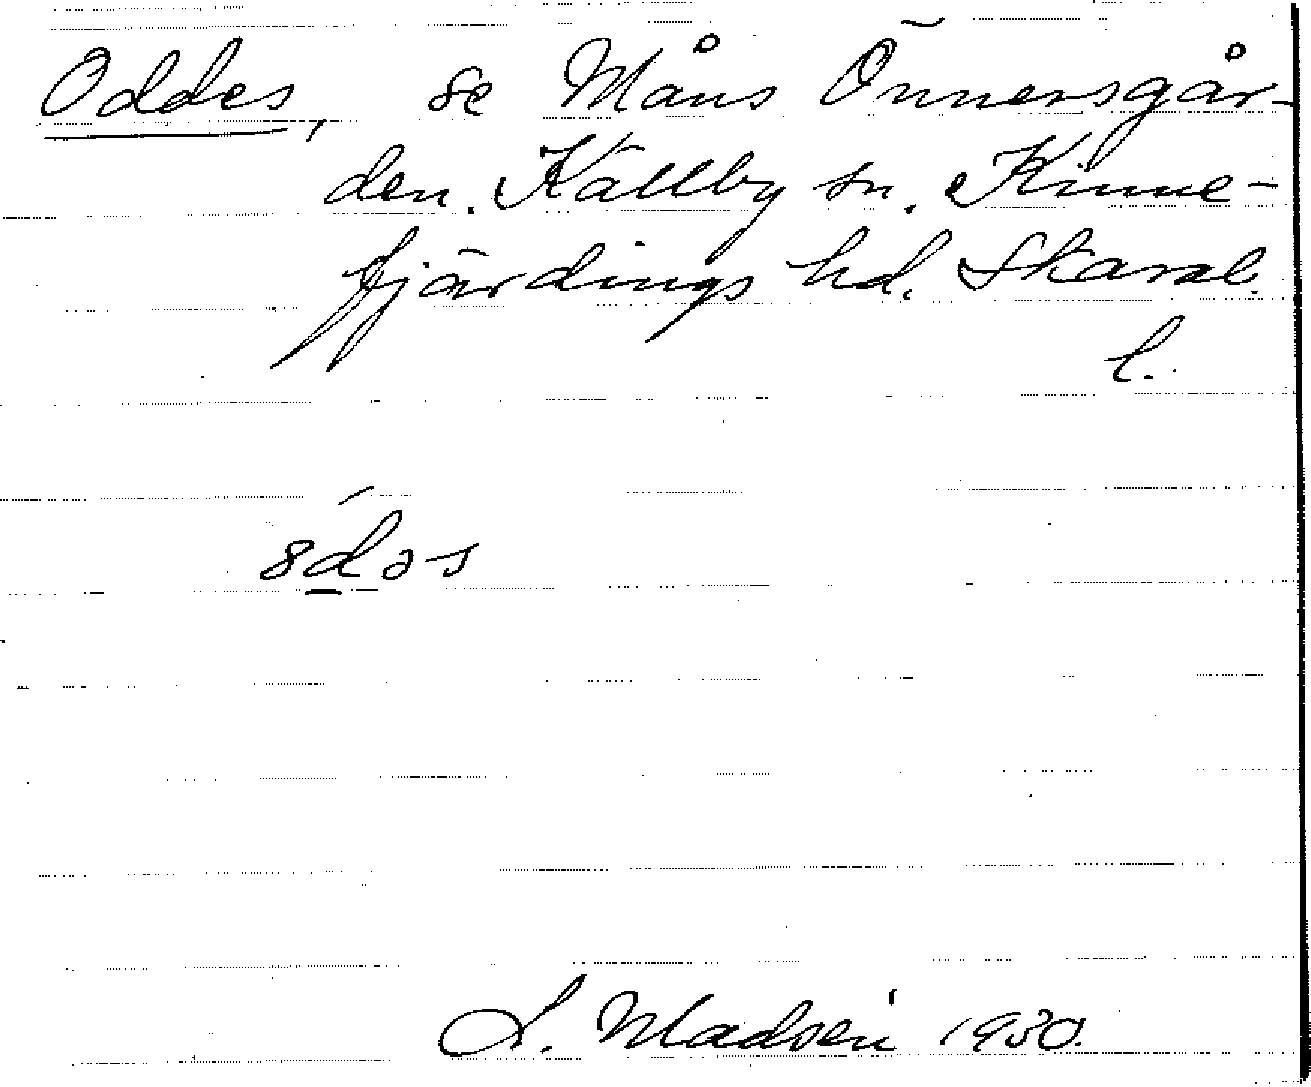 Oddes, se Måns Önnersgår-
den. Källby sn. Kinne-
fjärdings hd. Skarab.
l.
8dəs
L. Madsén 1930.